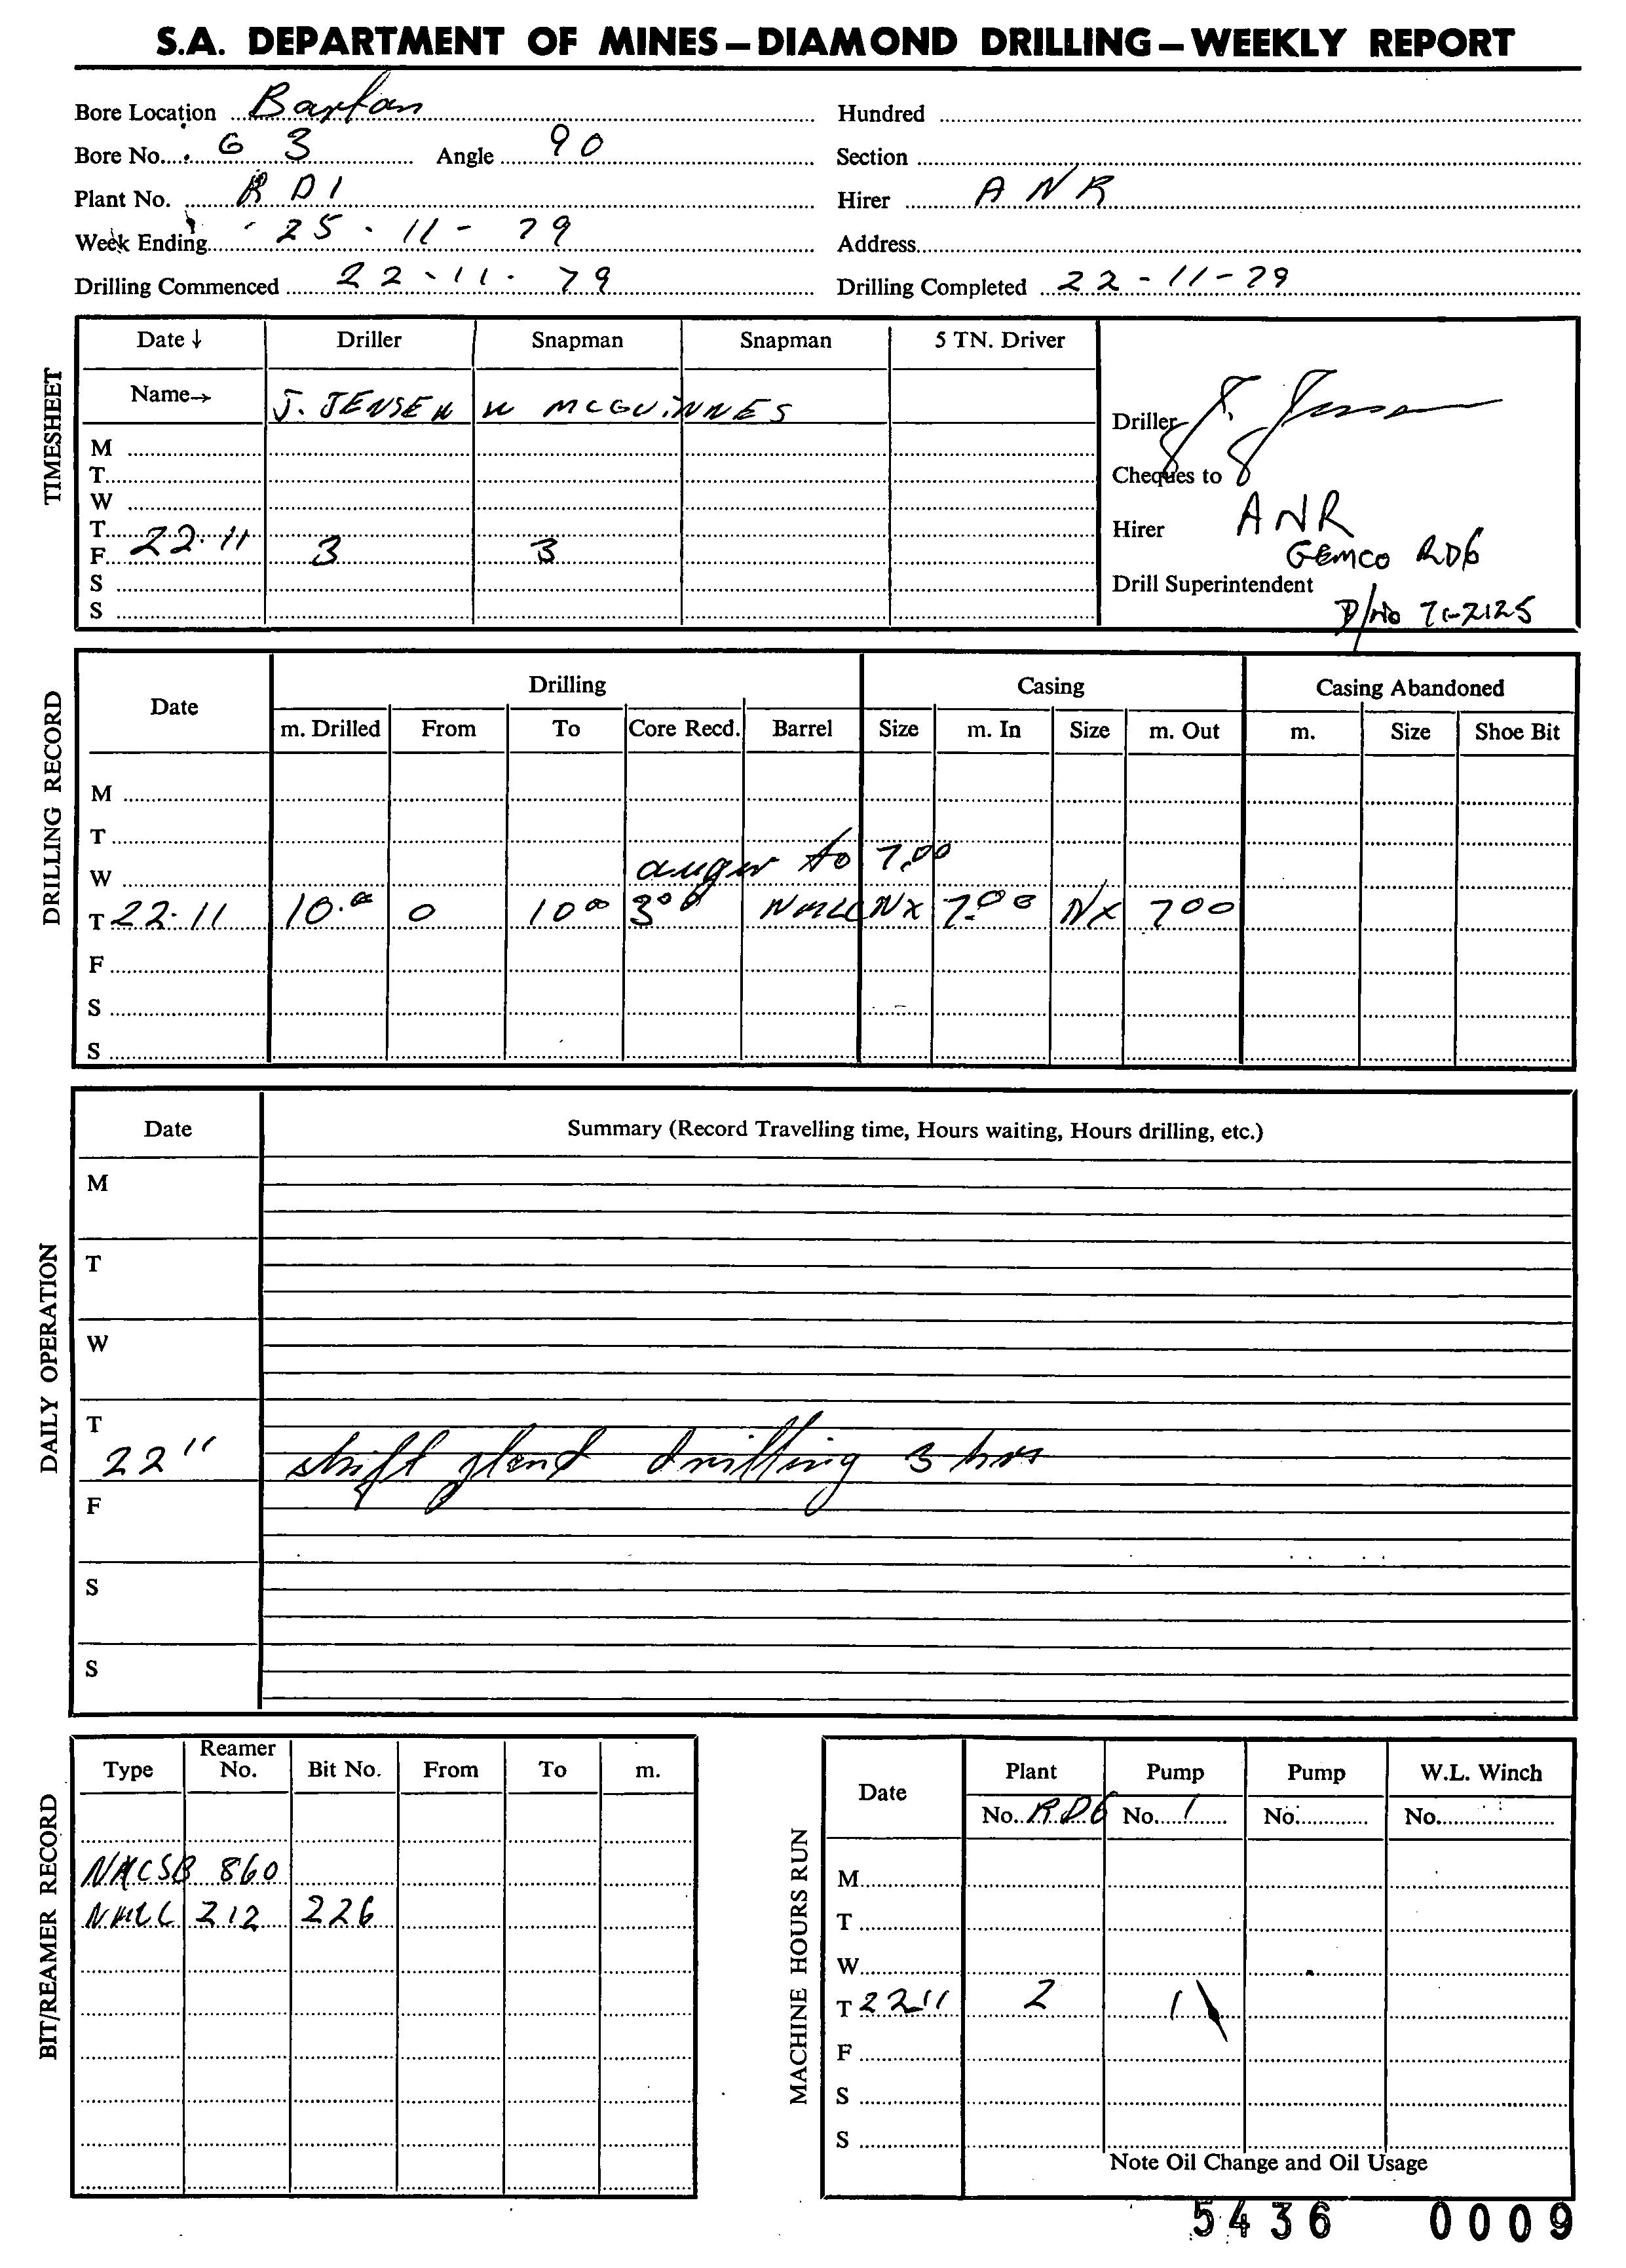 S.A. DEPARTMENT OF MINES — DIAMOND DRILLING — WEEKLY REPORT
Bore Location Barton Hundred
Bore No. G 3 Angle 90 Section
Plant No. R D 1 Hirer A N R
Week Ending 25 - 11 - 79 Address
Drilling Commenced 22 - 11 - 79 Drilling Completed 22 - 11 - 79
TIMESHEET
Date ↓ Driller Snapman Snapman 5 TN. Driver
Name→ J. JENSEN W MCGUINNES
M
T
W
T 22.11 3 3
F
S
S
Driller J. Jensen
Cheques to
Hirer ANR
GEMCO RD6
Drill Superintendent
D/No 71-2125
DRILLING RECORD
Date Drilling Casing Casing Abandoned
m. Drilled From To Core Recd. Barrel Size m. In Size m. Out m. Size Shoe Bit
M
T
auger to 7.00
W
T 22.11 10.00 0 10 00 3 00 NMLC NX 7.00 NX 7 00
F
S
S
DAILY OPERATION
Date Summary (Record Travelling time, Hours waiting, Hours drilling, etc.)
M
T
W
T
22 11 shift plant drilling 3 hrs
F
S
S
BIT/REAMER RECORD
Type Reamer No. Bit No. From To m.
NXCSB 860
NMLC 212 226
MACHINE HOURS RUN
Date Plant Pump Pump W.L. Winch
No. RD6 No. 1 No. No.
M
T
W
T 22.11 2 1
F
S
S
Note Oil Change and Oil Usage
5436 0009